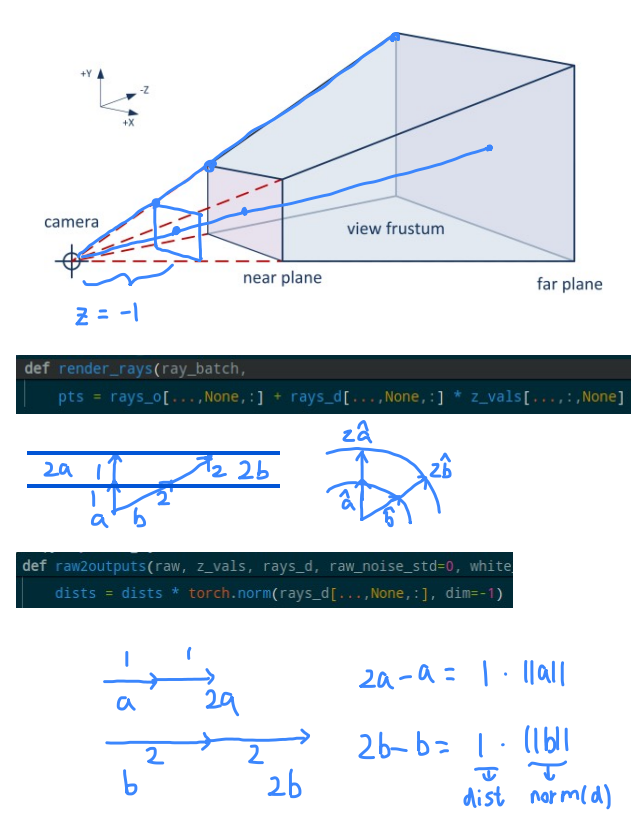 +Y
-Z
+X
camera
view frustum
near plane
far plane
z = -1
def render_rays(ray_batch,
pts = rays_o[...,None,:] + rays_d[...,None,:] * z_vals[...,:,None]
2a 1 2 2b
1 2
a b
2â
2b̂
â
b̂
def raw2outputs(raw, z_vals, rays_d, raw_noise_std=0, white_
dists = dists * torch.norm(rays_d[...,None,:], dim=-1)
1 1
a 2a
2a-a = 1 · ||a||
2 2
b 2b
2b-b = 1 · ||b||
dist norm(d)